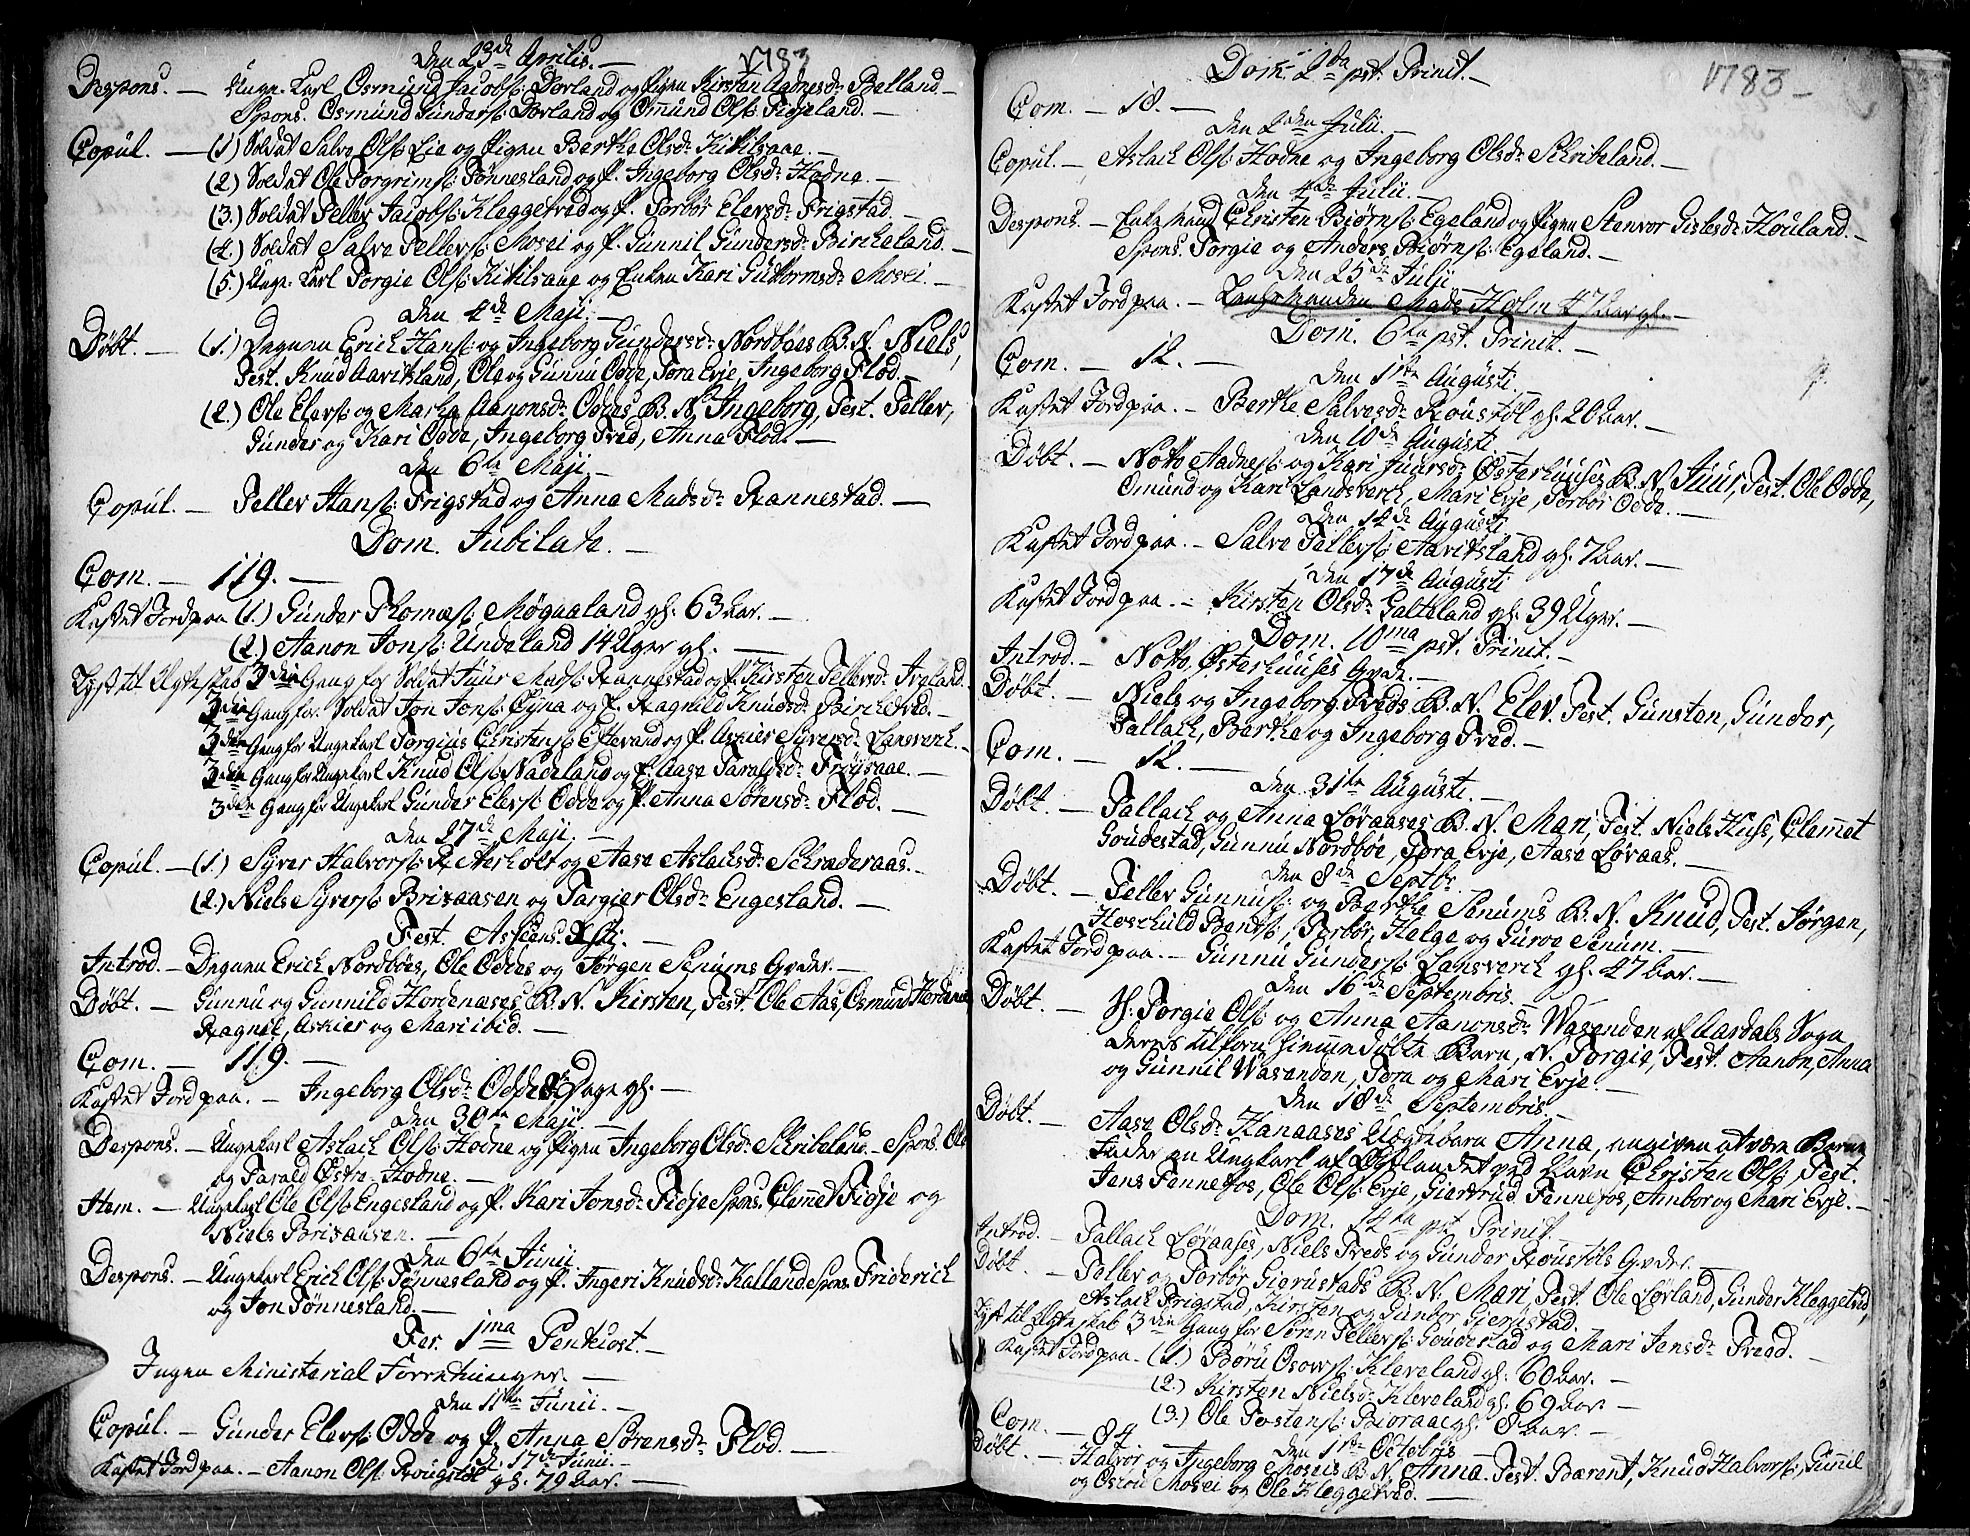 Den 23de Aprilis. — 1783
Despons. — Unge Karl Osmund Jacobs: Dorland og Pigen Kirsten Aadnesdr Bælland —
Spons. Osmund Gunders: Dorland og Omund Ols: Fidjeland. —
Copul. — (1.) Soldat Salve Ols: Lie og Pigen Berthe Olsdr Kitilsaae. —
(2.) Soldat Ole Torgrims: Tønnesland og P. Ingeborg Olsdr Hodne. —
(3.) Soldat Tellev Jacobs: Kleggetved og P. Torbor Elevsdr Frigstad. —
(4.) Soldat Salve Tellevs: Mosei og P. Gunnil Gundersdr Bircheland. —
(5.) Unge Karl Torgie Ols: Kitilsaae og Enken Kari Guttormsdr Mosei. —
Den 4de Maji. —
Døbt. — (1.) Degnen Erich Hans: og Ingeborg Gundersdr Nordbøes B. N. Niels,
Test. Knud Aavitsland, Ole og Gunnu Odde, Tora Evje, Ingeborg Flod. —
(2.) Ole Elevs: og Marthe Aanonsdr Oddes B. N. Ingeborg, Test. Tellev,
Gunder og Kari Odde, Ingeborg Tved, Anna Flod. —
Den 6te Maji. —
Copul. — Tellev Hans: Frigstad og Anna Madsdr Rannestad. —
Dom. Jubilate. —
Com. — 119. —
Kastet Jord paa (1.) Gunder Thomæs: Møgualand gl. 63 Aar. —
(2.) Aanon Jons: Undeland 14 Uger gl. —
Lyst til Ægteskab 3die Gang for Soldat Juur Mads: Rannestad og P. Kirsten Tellevsdr Iveland.
3die Gang for Soldat Jon Jons: Øyna og P. Ragnild Knudsdr Birchetved. —
3die Gang for Ungekarl Torgius Christens: Eftevand og P. Askier Syversdr Lansverck. —
3die Gang for Ungekarl Knud Ols: Nædeland og P. Aase Taraldsdr Frøysaae. —
3die Gang for Ungekarl Gunder Elevs: Odde og P. Anna Sørensdr Flod. —
Den 27de Maji. —
Copul. — (1.) Syver Halvors: Aerholt og Aase Aslachsdr Schræderaas. —
(2.) Niels Syvers: Brixaasen og Targier Olsdr Engesland. —
Fest. Ascens. Xsti. —
Introd. — Degnen Erich Nordbøes, Ole Oddes og Jørgen Senums Qvder. —
Døbt. — Gunnu og Gunnild Hordenæses B. N. Kirsten, Test. Ole Aas, Osmund Hordenæs
Ragnil, Askier og Mari ibid. —
Com. — 119. —
Kastet Jord paa. — Ingeborg Olsdr Odde Dage gl. —
Den 30te Maji. —
Despons. — Ungekarl Aslach Ols: Hodne og Pigen Ingeborg Olsdr Schribeland. — Spons. Ole
og Tarald Østre Hodne. —
Item. — Ungekarl Ole Ols: Engesland og P. Kari Jonsdr Fidje Spons. Clemet Fidje og
Niels Brixaasen. —
Den 6te Junii
Despons. — Ungekarl Erich Ols: Tønnesland og P. Ingeri Knudsdr Kalland Spons. Friderich
og Jon Tønnesland. —
Fer. 1ma Pentecost. —
Ingen Ministerial Forretninger. —
Den 11te Junii. —
Copul. — Gunder Elevs: Odde og P. Anna Sørensdr Flod. —
d. 17de Junii. —
Kastet Jord paa. — Aanon Ols: Rougstøl gl. 79 Aar. —
Dom. 2da pst. Trinit. — 1783 —
Com. — 18. —
Den 2den Julii. —
Copul. — Aslach Ols: Hodne og Ingeborg Olsdr Schribeland. —
Den 4de Julii. —
Despons. — Enkemand Christen Biørns: Egeland og Pigen Stenvor Gislesdr Houland. —
Spons. Torgie og Anders Biørns: Egeland. —
Den 25de Julii —
Kastet Jord paa. — Lensmanden Mads Holm 47 Aar gl. —
Dom. 6ta pst. Trinit. —
Com. — 12. —
Den 1ste Augusti. —
Kastet Jord paa. — Berthe Salvesdr Roustøl gl. 20 Aar. —
Den 10de Augusti
Døbt. — Notto Aadnes: og Kari Juursdr Østerhuuses B. N. Juur, Test. Ole Odde,
Omund og Kari Landsverck, Mari Evje, Torbor Odde. —
Den 14de Augusti
Kastet Jord paa. — Salve Tellevs: Aavitsland gl. 7 Aar. —
Den 17de Augusti
Kastet Jord paa. — Kirsten Olsdr Galteland gl. 39 Uger. —
Dom. 10ma pst. Trinit. —
Introd. — Notto Østerhuuses Qvde. —
Døbt. — Niels og Ingeborg Tveds B. N. Elev. Test. Gunsten, Gunder,
Tallach, Berthe og Ingeborg Tved. —
Com. — 12. —
Den 31te Augusti. —
Døbt. — Tallach og Anna Løvaases B. N. Mari, Test. Niels Huss, Clemmet
Goudestad, Gunnu Nordbøe, Tora Evje, Aase Løvaas. —
Den 8de Septbr.
Døbt. — Tellev Gunnus: og Berthe Senums B. N. Knud, Test. Jørgen,
Hoschuld Bents:, Torbor, Helge og Guroe Senum. —
Kastet Jord paa. — Gunnu Gunders: Lansverck gl. 47 Aar. —
Den 16de Septembris. —
Døbt. — Torgie Ols: og Anna Aanonsdr Wasenden af Aardals Sogn
deres tilforn hiemmedøbte Barn, N. Torgie, Test. Aanon, Anna
og Gunnil Wasenden, Tora og Mari Evje. —
Den 18de Septembris. —
Døbt. — Aase Olsdr Kanaases Uægtebarn Anna, angiven at være Barne
Fader en Ungkarl af Oplandet ved Navn Christen Ols: Test.
Jens Fennefos, Ole Ols: Evje, Giertrud Fennefos, Annbor og Mari Evje. —
Dom. 14ta pst Trinit. —
Introd. — Tallach Løvaases, Niels Tveds og Gunder Roustøls Qvder. —
Døbt. — Tellev og Torbor Gierustads B. N. Mari, Test. Ole Løvland, Gunder Kleggetved,
Aslach Frigstad, Kirsten og Gunbor Gierustad.
Lyst til Ægteskab 3die Gang for Søren Tellevs: Goudestad og Mari Jensdr Tveed. —
Kastet Jord paa. — (1.) Børu Osows: Kleveland gl. 60 Aar. —
(2.) Kirsten Nielsdr Kleveland gl. 69 Aar. —
(3.) Ole Tostens: Bioraae gl. 8 Aar. —
Com. — 84 —
Den 1ste Octobris —
Døbt. — Halvor og Ingeborg Moseis B. N. Anna. Test. Bærent, Knud Halvors:, Gunnil
og Osmu Mosei og Ole Kleggetved. —